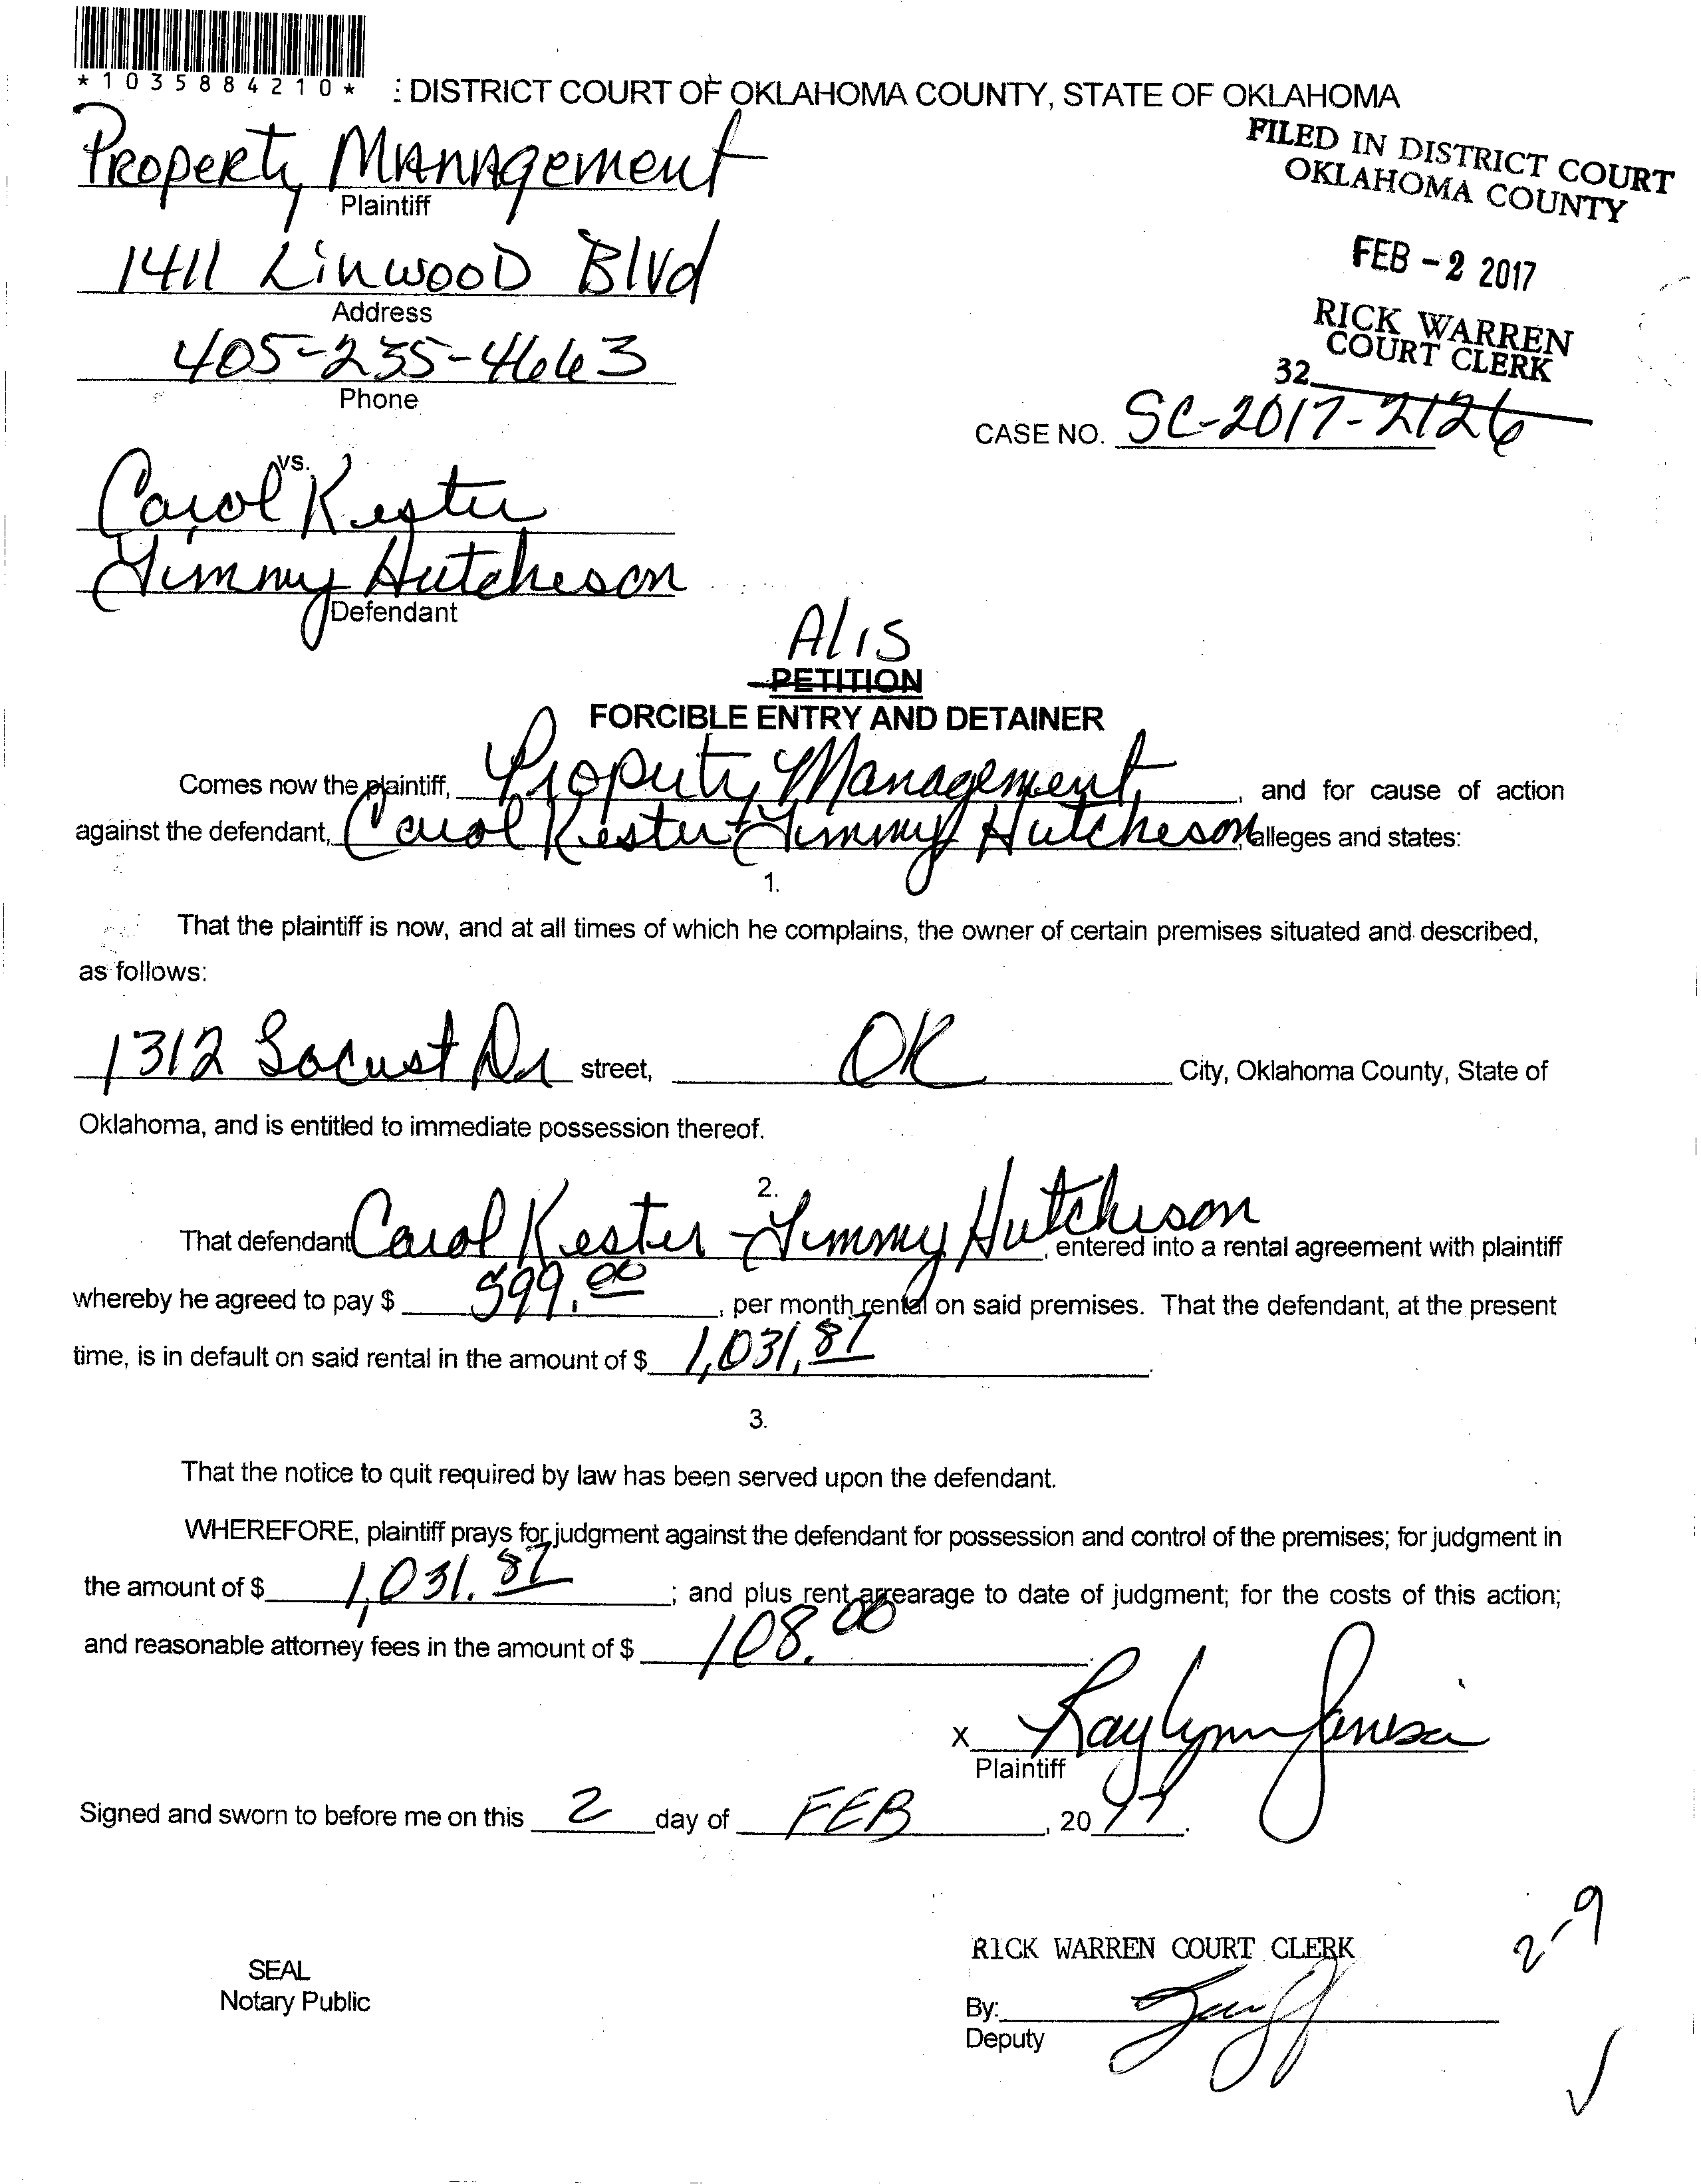 *1035884210*
: DISTRICT COURT OF OKLAHOMA COUNTY, STATE OF OKLAHOMA
Property Management
Plaintiff
FILED IN DISTRICT COURT
OKLAHOMA COUNTY
1411 Linwood Blvd
Address
FEB - 2 2017
405-235-4663
Phone
RICK WARREN
COURT CLERK
32
CASE NO. SC-2017-2126
vs.
Carol Kester
Jimmy Hutcheson
Defendant
Alis
PETITION
FORCIBLE ENTRY AND DETAINER
Comes now the plaintiff, Property Management, and for cause of action
against the defendant, Carol Kester + Jimmy Hutcheson, alleges and states:
1.
That the plaintiff is now, and at all times of which he complains, the owner of certain premises situated and described,
as follows:
1312 Locust Dr street, OK City, Oklahoma County, State of
Oklahoma, and is entitled to immediate possession thereof.
2.
That defendant Carol Kester - Jimmy Hutcheson, entered into a rental agreement with plaintiff
whereby he agreed to pay $ 599.00, per month rental on said premises. That the defendant, at the present
time, is in default on said rental in the amount of $ 1,031.87.
3.
That the notice to quit required by law has been served upon the defendant.
WHEREFORE, plaintiff prays for judgment against the defendant for possession and control of the premises; for judgment in
the amount of $ 1,031.87; and plus rent arrearage to date of judgment; for the costs of this action;
and reasonable attorney fees in the amount of $ 108.00.
X Raylynn
Plaintiff
Signed and sworn to before me on this 2 day of FEB, 2017.
2-9
RICK WARREN COURT CLERK
SEAL
Notary Public
By:
Deputy